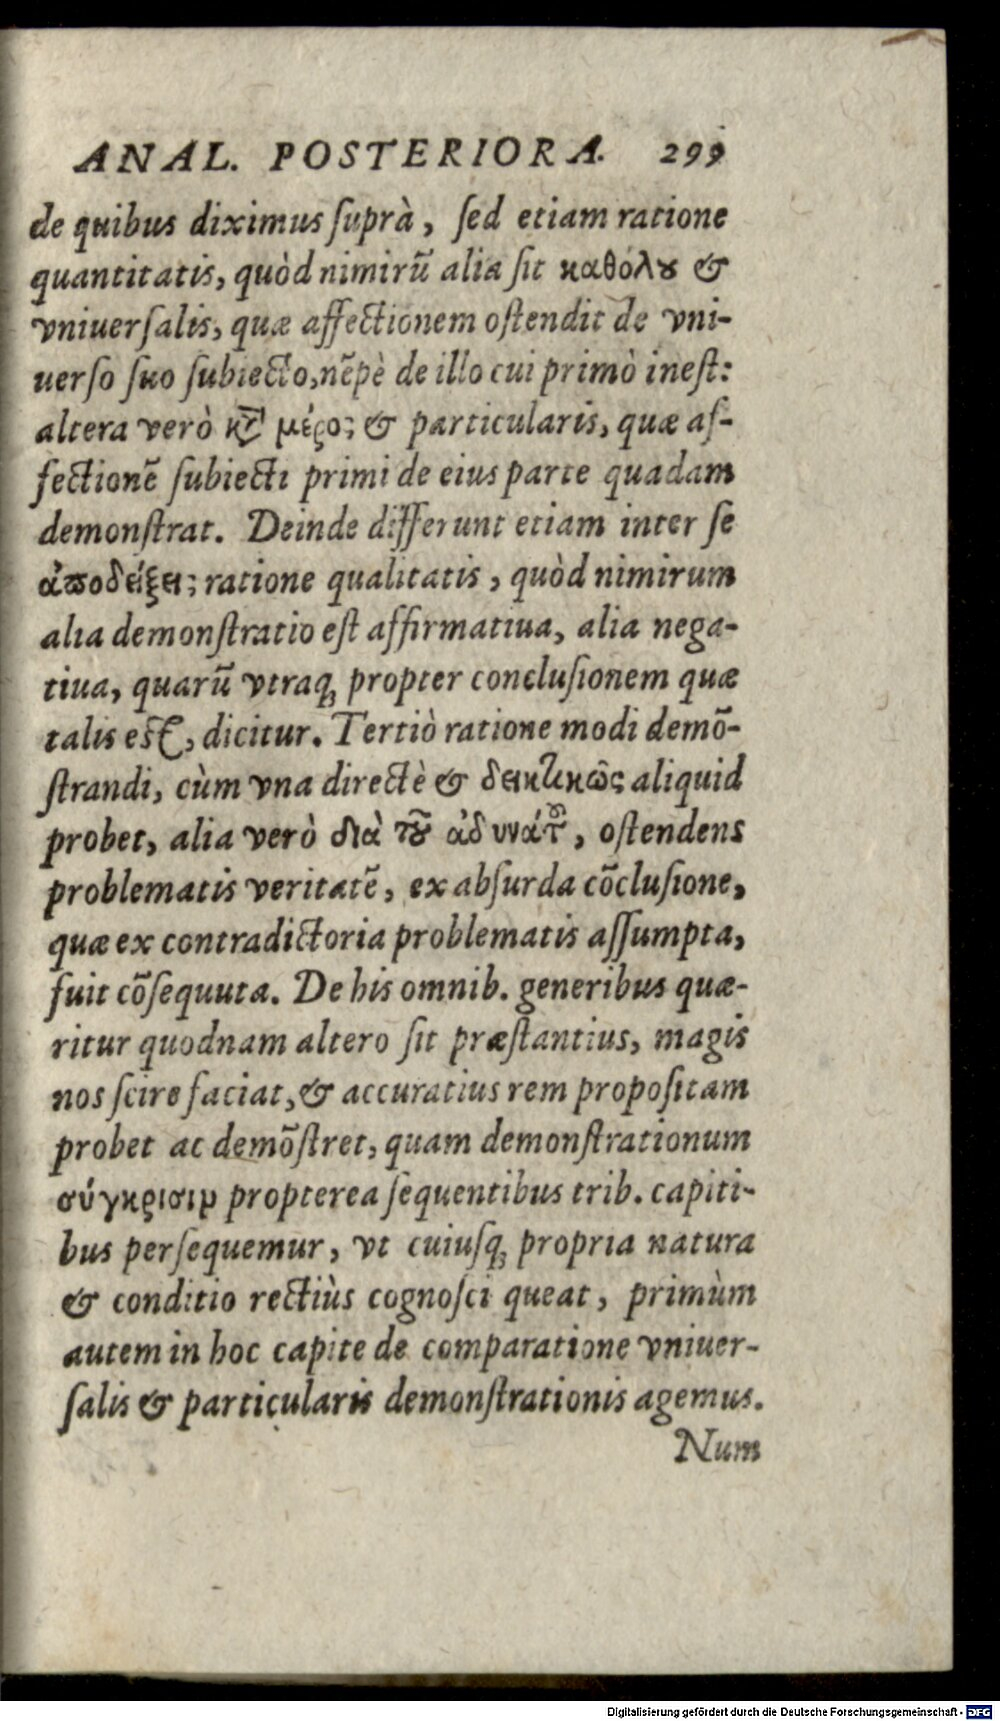 ANAL. POSTERIORA. 299
de quibus diximus ſuprà, ſed etiam ratione
quantitatis, quòd nimirũ alia ſit καθόλȣ &
vniuerſalis, quæ affectionem oſtendit de vni-
uerſo ſuo ſubiecto, nẽpè de illo cui primò ineſt:
altera verò κτ̀ μέρος & particularis, quæ af-
fectionẽ ſubiecti primi de eius parte quadam
demonſtrat. Deinde differunt etiam inter ſe
ἀϖοδείξεις ratione qualitatis, quòd nimirum
alia demonſtratio eſt affirmatiua, alia nega-
tiua, quarũ vtraq; propter concluſionem quæ
talis eſt, dicitur. Tertiò ratione modi demõ-
ſtrandi, cùm vna directè & δεικτικῶς aliquid
probet, alia verò διὰ τȣ͂ ἀδυνάτȣ, oſtendens
problematis veritatẽ, ex abſurda cõcluſione,
quæ ex contradictoria problematis aſſumpta,
fuit cõſequuta. De his omnib. generibus quæ-
ritur quodnam altero ſit præſtantius, magis
nos ſcire faciat, & accuratius rem propoſitam
probet ac demõſtret, quam demonſtrationum
σύγκρισιν propterea ſequentibus trib. capiti-
bus perſequemur, vt cuiuſq; propria natura
& conditio rectiùs cognoſci queat, primùm
autem in hoc capite de comparatione vniuer-
ſalis & particularis demonſtrationis agemus.
Num
Digitalisierung gefördert durch die Deutsche Forschungsgemeinschaft - DFG